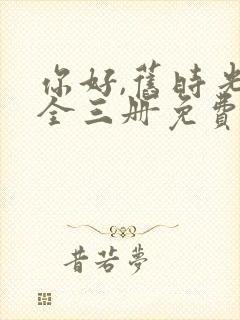 你好,舊時光
全三册免費
昔若夢